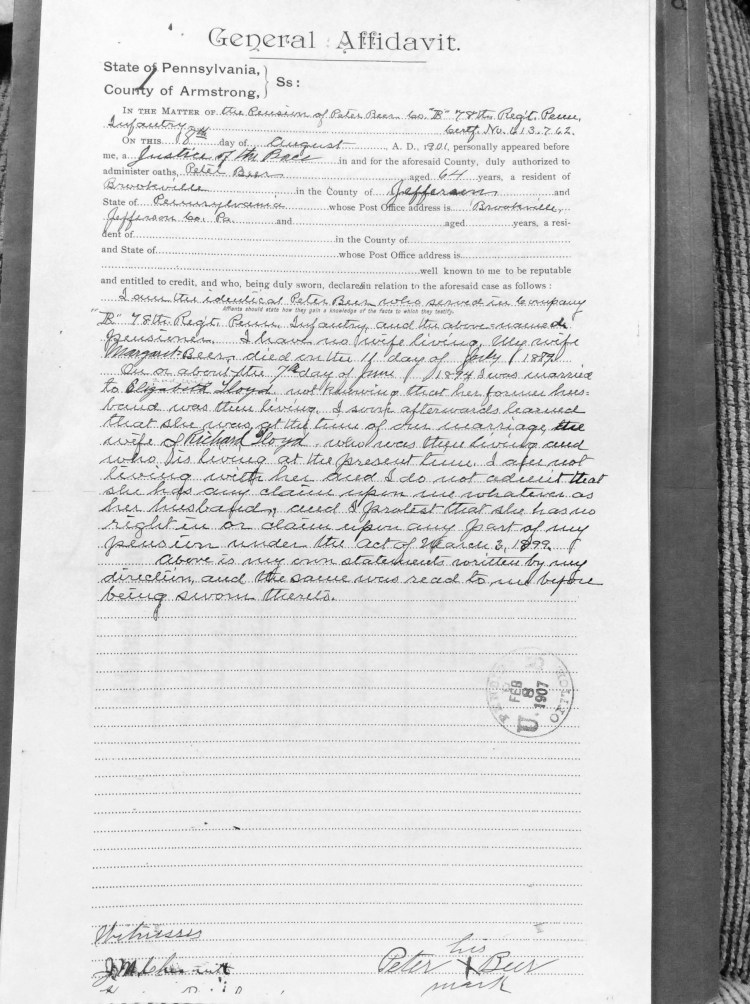 General Affidavit.
State of Pennsylvania,
County of Armstrong, } Ss:
IN THE MATTER OF the Pension of Peter Beer Co. "B" 78th Reg't. Penn.
Infantry Certf. No. 613.762.
ON THIS 18th day of August A. D., 1901, personally appeared before
me, a Justice of the Peace in and for the aforesaid County, duly authorized to
administer oaths, Peter Beer aged 64 years, a resident of
Brookville in the County of Jefferson and
State of Pennsylvania whose Post Office address is Brookville,
Jefferson Co. Pa. and aged years, a resi-
dent of in the County of
and State of whose Post Office address is
well known to me to be reputable
and entitled to credit, and who, being duly sworn, declares in relation to the aforesaid case as follows:
I am the identical Peter Beer who served in Company
Affiants should state how they gain a knowledge of the facts to which they testify.
"B" 78th Reg't. Penn. Infantry, and the above-named
Pensioner. I have no wife living. My wife
Margaret Beer, died on the 11 day of July
On or about the 7th day of June 1894 I was married
to Elizabeth Lloyd not knowing that her former hus-
band was then living. I soon afterwards learned
that she was at the time of our marriage, the
wife of Richard Lloyd, who was then living and
who is living at the present time. I am not
living with her and I do not admit that
she has any claim upon me whatever as
her husband, and I protest that she has no
right in or claim upon any part of my
pension under the act of March 3, 1899.
above is my own statements written by my
direction, and the same was read to me before
being sworn thereto.
FEB
8
1907
U.
Witnesses
Peter his X Beer
mark